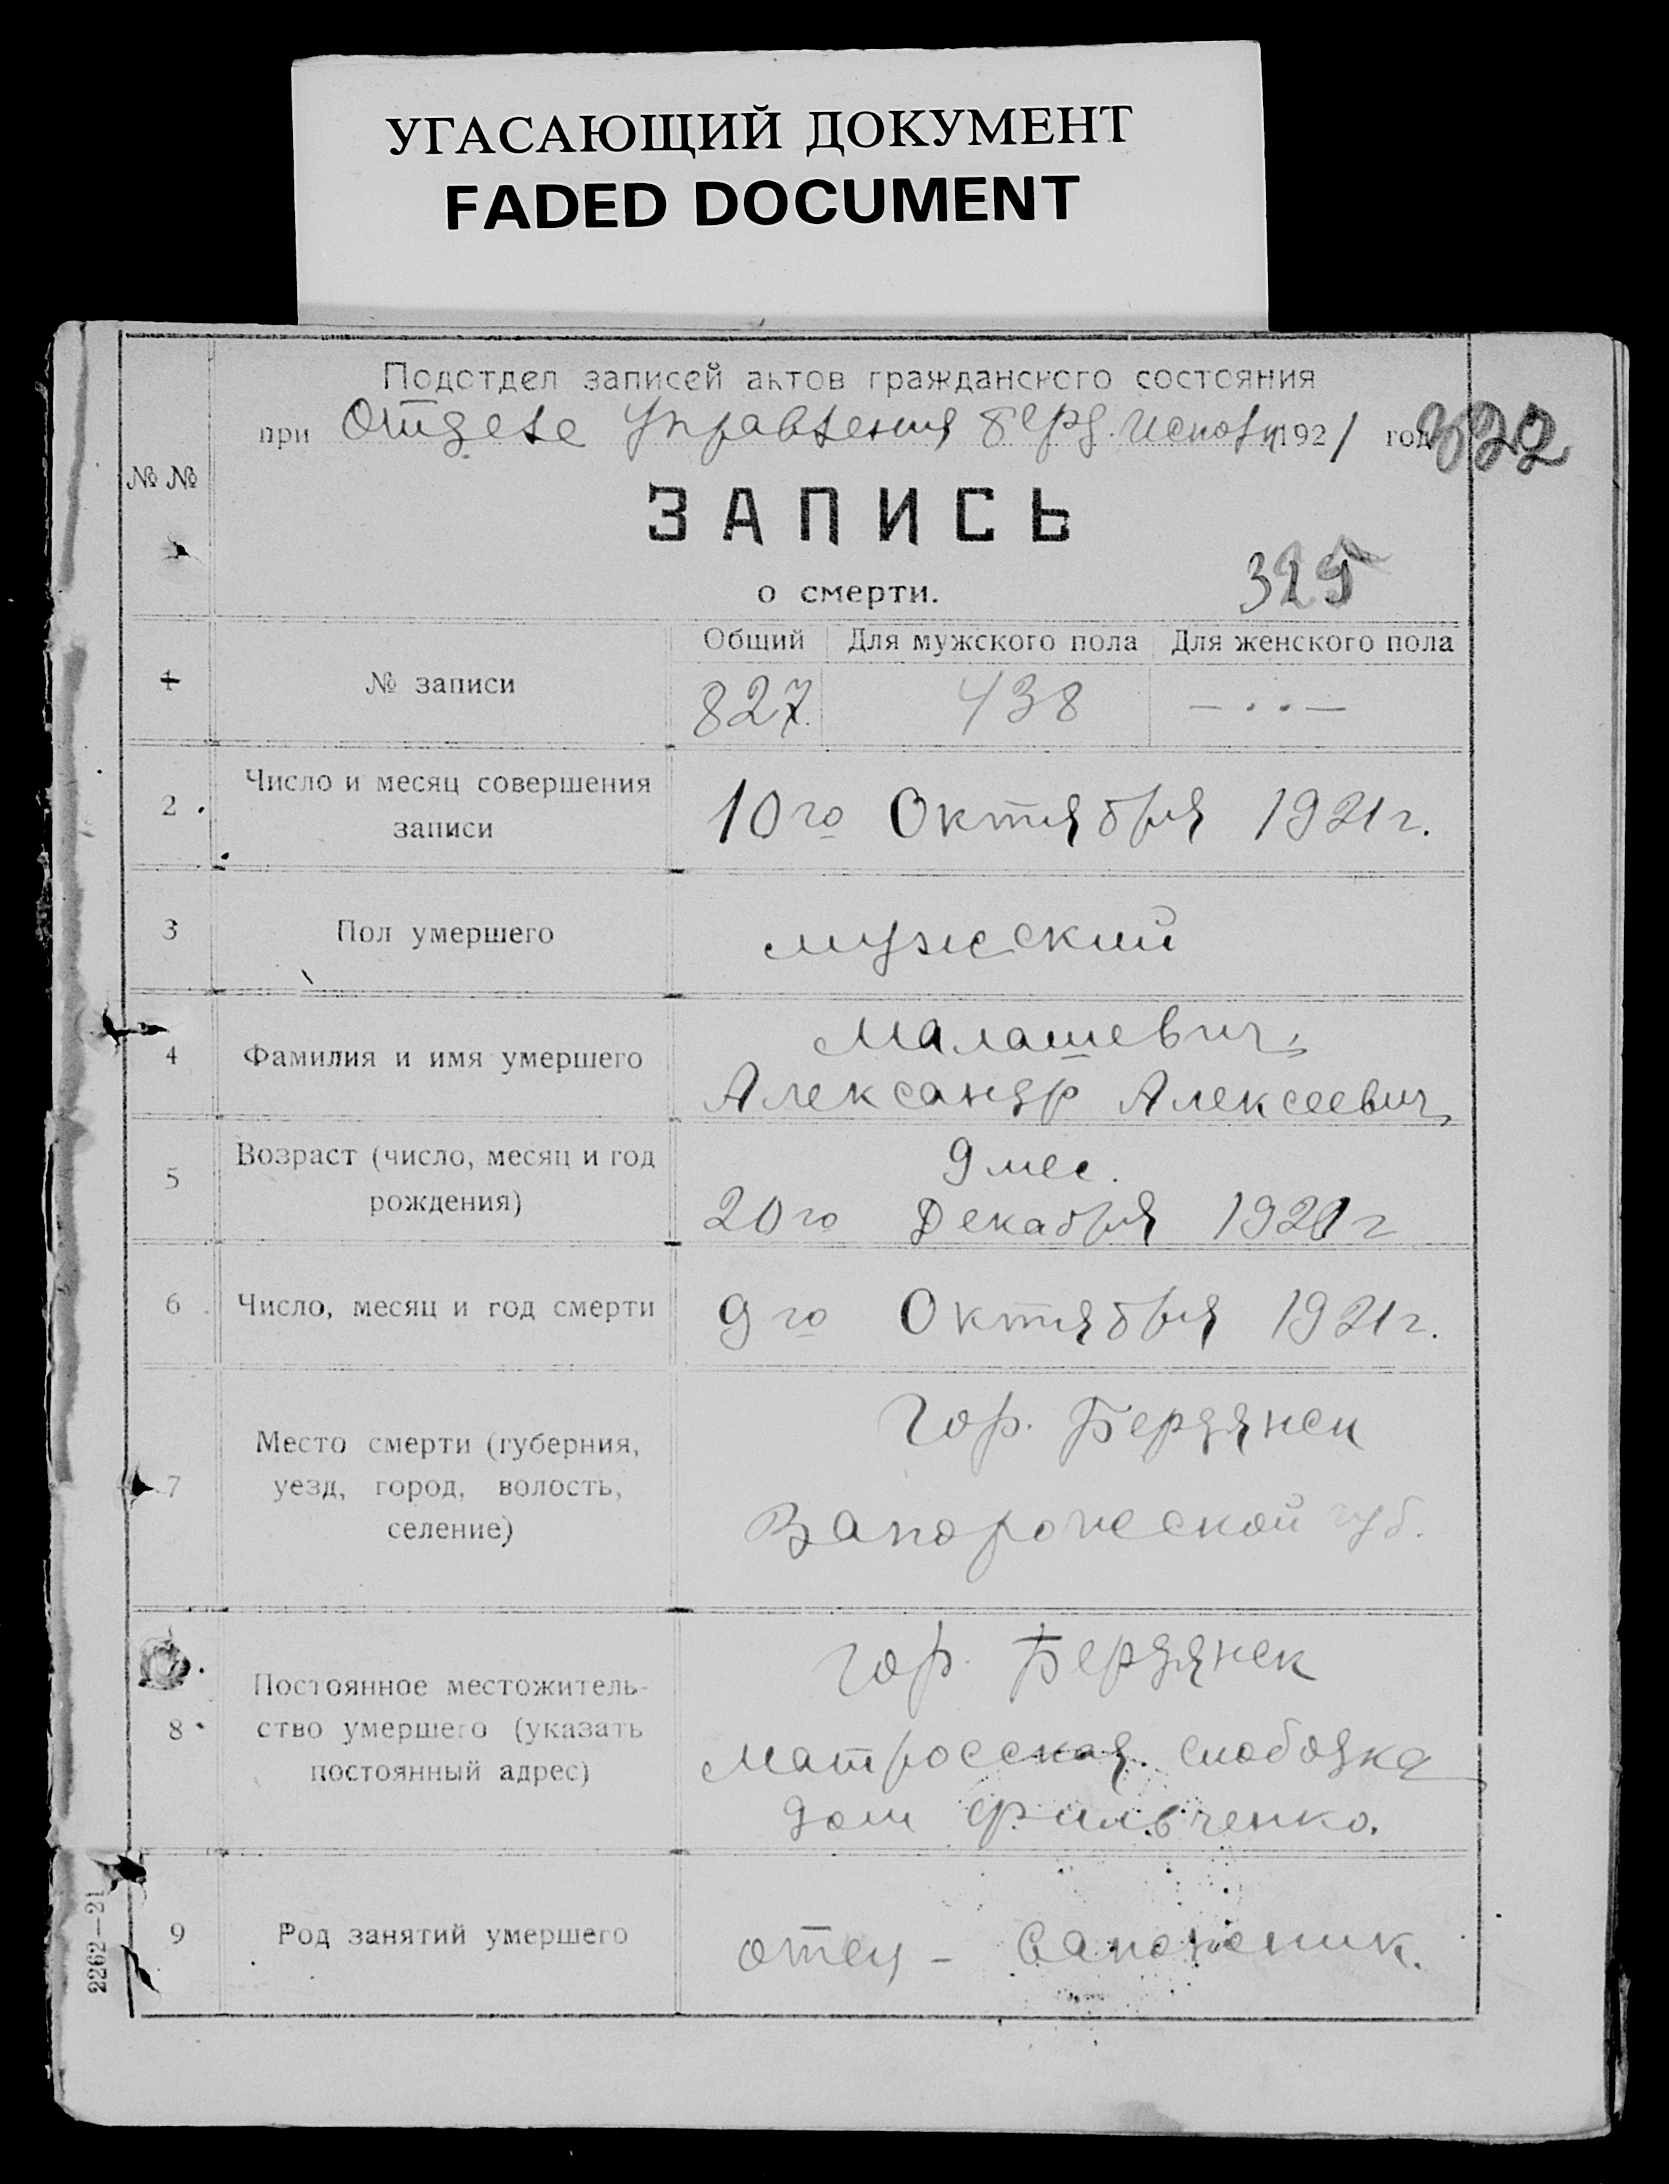 УГАСАЮЩИЙ ДОКУМЕНТ
FADED DOCUMENT
Подотдел записей актов гражданского состояния
при Отделе Управления Берд. Исполк 1921 год
322
№ №
ЗАПИСЬ
о смерти.
325
Общий Для мужского пола Для женского пола
1 № записи 827 438 — . . —
2 Число и месяц совершения
записи
10го Октября 1921г.
3 Пол умершего мужской
4 Фамилия и имя умершего
Малашевич
Александр Алексеевич
5 Возраст (число, месяц и год
рождения)
9 мес.
20го Декабря 1920г
6 Число, месяц и год смерти 9го Октября 1921г.
7 Место смерти (губерния,
уезд, город, волость,
селение)
Гор. Бердянск
Запорожской губ.
8 Постоянное местожитель-
ство умершего (указать
постоянный адрес)
гор. Бердянск
матросская слободка
дом Фильченко.
9 Род занятий умершего отец – Сапожник.
2262—21